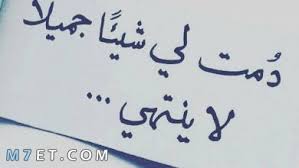 دُمت لي شيئًا جميلا
لا ينتهي ...
M7ET.COM